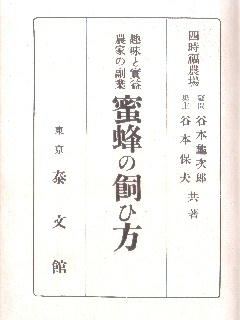 四時福農場
顧問 谷本龜次郎
場主 谷本保夫 共著
趣味と實益
農家の副業
蜜蜂の飼ひ方
東京 泰文館